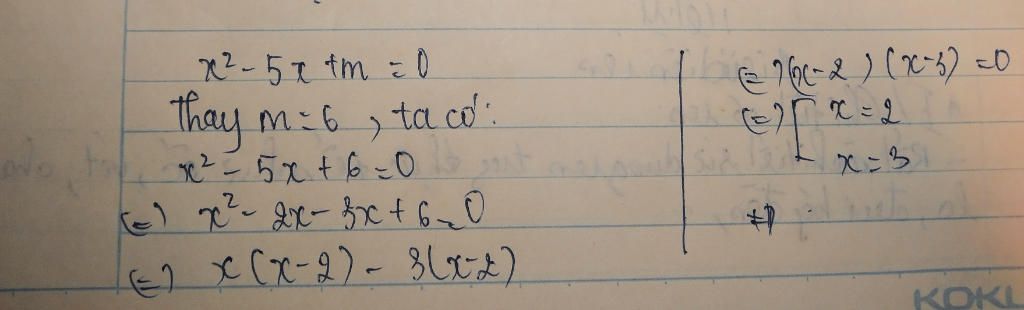 x² - 5x + m = 0
Thay m = 6, ta có:
x² - 5x + 6 = 0
(=) x² - 2x - 3x + 6 = 0
(=) x(x-2) - 3(x-2)
(=) (x-2)(x-3) = 0
(=) [ x = 2
x = 3
KOKU